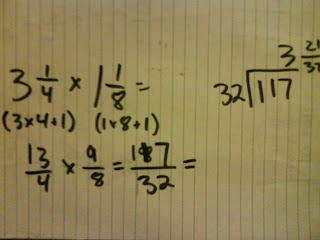 3 1/4 × 1 1/8 =
(3×4+1) (1×8+1)
13/4 × 9/8 = 117/32 =
3 21/32
32 117